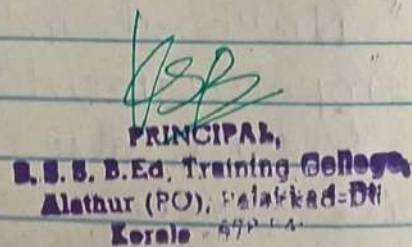 PRINCIPAL,
B.S.S. B.Ed. Training College
Alathur (PO), Palakkad-Dti
Kerala